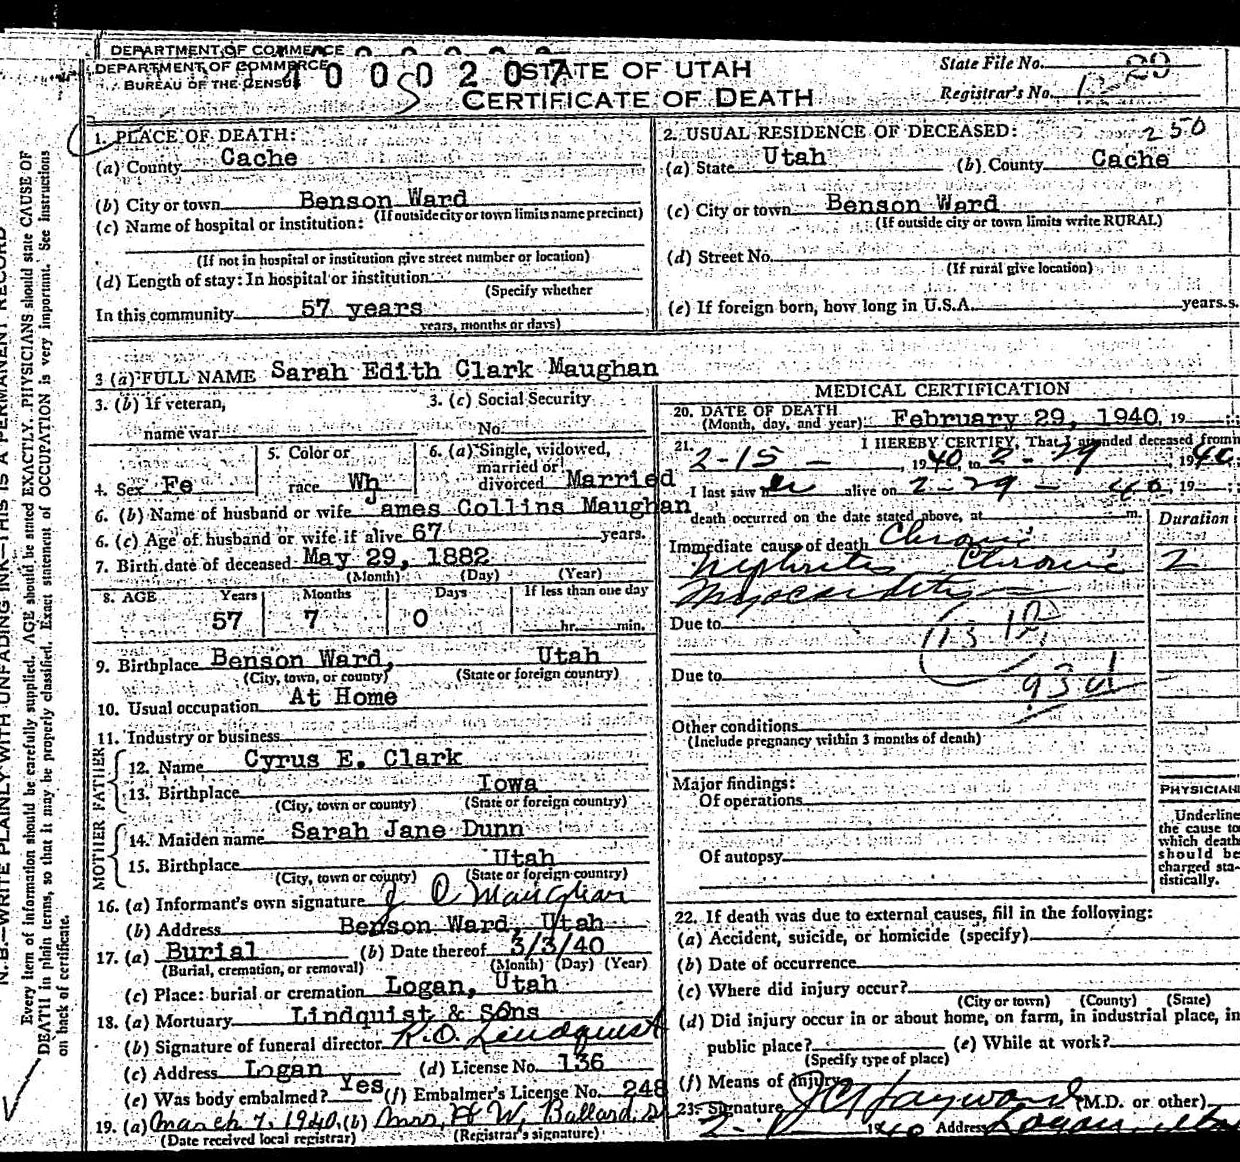 DEPARTMENT OF COMMERCE
DEPARTMENT OF COMMERCE
BUREAU OF THE CENSUS
4000207
STATE OF UTAH
CERTIFICATE OF DEATH
State File No. 29
Registrar's No.
250
1. PLACE OF DEATH:
(a) County Cache
(b) City or town Benson Ward
(If outside city or town limits name precinct)
(c) Name of hospital or institution:
(If not in hospital or institution give street number or location)
(d) Length of stay: In hospital or institution
(Specify whether
In this community 57 years
years, months or days)
2. USUAL RESIDENCE OF DECEASED:
(a) State Utah (b) County Cache
(c) City or town Benson Ward
(If outside city or town limits write RURAL)
(d) Street No.
(If rural give location)
(e) If foreign born, how long in U.S.A. years.s.
3 (a) FULL NAME Sarah Edith Clark Maughan
3. (b) If veteran, name war
3. (c) Social Security No.
4. Sex Fe
5. Color or race Wh
6. (a) Single, widowed, married or divorced Married
6. (b) Name of husband or wife James Collins Maughan
6. (c) Age of husband or wife if alive 67 years.
7. Birth date of deceased May 29, 1882
(Month) (Day) (Year)
8. AGE Years Months Days If less than one day
57 7 0 hr. min.
9. Birthplace Benson Ward, Utah
(City, town, or county) (State or foreign country)
10. Usual occupation At Home
11. Industry or business
FATHER
12. Name Cyrus E. Clark
13. Birthplace Iowa
(City, town or county) (State or foreign country)
MOTHER
14. Maiden name Sarah Jane Dunn
15. Birthplace Utah
(City, town or county) (State or foreign country)
16. (a) Informant's own signature J C Maughan
(b) Address Benson Ward, Utah
17. (a) Burial (b) Date thereof 3/3/40
(Burial, cremation, or removal) (Month) (Day) (Year)
(c) Place: burial or cremation Logan, Utah
18. (a) Mortuary Lindquist & Sons
(b) Signature of funeral director R.O. Lindquist
(c) Address Logan (d) License No. 136
(e) Was body embalmed? Yes (f) Embalmer's License No. 248
19. (a) March 7, 1940, (b) Mrs, H W, Ballard,
(Date received local registrar) (Registrar's signature)
MEDICAL CERTIFICATION
20. DATE OF DEATH February 29, 1940, 19
(Month, day, and year)
21. I HEREBY CERTIFY, That I attended deceased from
2-15 - , 1940, to 2-29 1940
I last saw her alive on 2-29- 40, 19
death occurred on the date stated above, at m.
Duration
Immediate cause of death Chronic
Nephritis Chronic 2
Myocarditis
Due to
Due to
93d
Other conditions
(Include pregnancy within 3 months of death)
Major findings:
Of operations
Of autopsy
PHYSICIAN
Underline
the cause to
which death
should be
charged sta-
tistically.
22. If death was due to external causes, fill in the following:
(a) Accident, suicide, or homicide (specify)
(b) Date of occurrence
(c) Where did injury occur?
(City or town) (County) (State)
(d) Did injury occur in or about home, on farm, in industrial place, in
public place? (e) While at work?
(Specify type of place)
(f) Means of injury
23. Signature J C Hayward (M.D. or other)
1940 Address Logan, Utah
N. B.—WRITE PLAINLY WITH UNFADING INK—THIS IS A PERMANENT RECORD
Every item of information should be carefully supplied. AGE should be stated EXACTLY. PHYSICIANS should state CAUSE OF
DEATH in plain terms, so that it may be properly classified. Exact statement of OCCUPATION is very important. See instructions
on back of certificate.